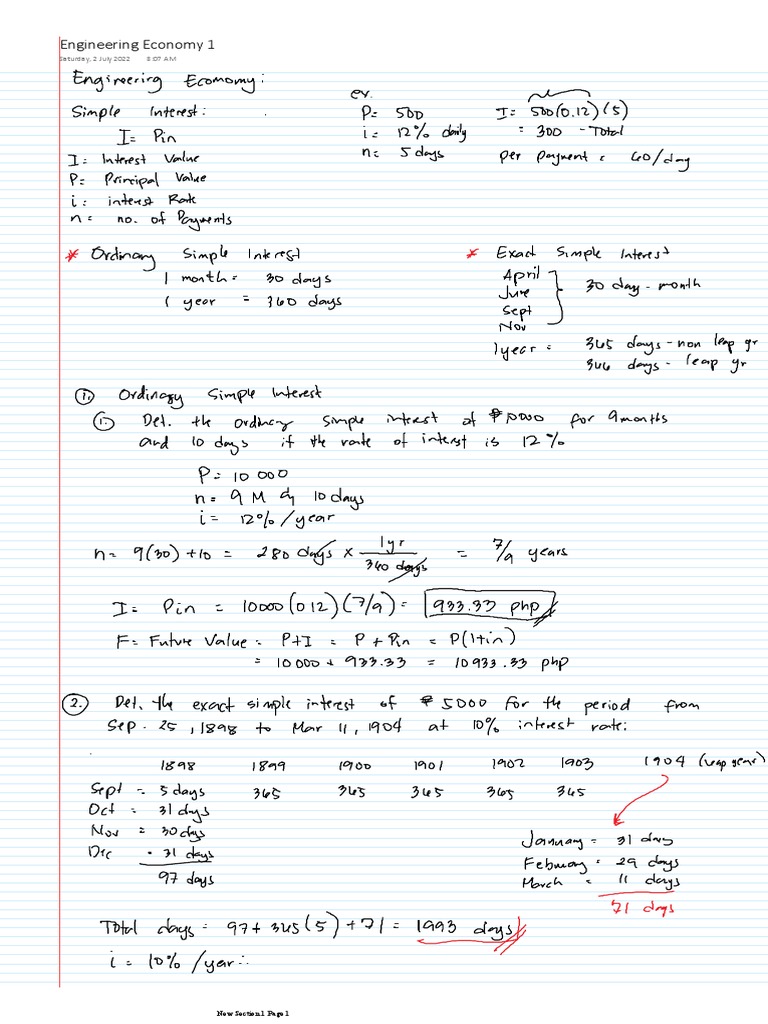 Engineering Economy 1
Saturday, 2 July 2022 8:07 AM
Engineering Economy:
Simple Interest:
I = Pin
I = Interest Value
P = Principal Value
i = interest Rate
n = no. of Payments
ex.
P = 500
i = 12% daily
n = 5 days
I = 500(0.12)(5)
= 300 - Total
per payment = 60/day
* Ordinary Simple Interest
1 month = 30 days
1 year = 360 days
* Exact Simple Interest
April
June
Sept
Nov
30 day - month
1 year = 365 days - non leap yr
366 days - leap yr
1. Ordinary Simple Interest
1. Det. the ordinary simple interest of ₱10000 for 9 months
and 10 days if the rate of interest is 12%
P = 10 000
n = 9 M & 10 days
i = 12% / year
n = 9(30) + 10 = 280 days × 1yr / 360 days = 7/9 years
I = Pin = 10000(0.12)(7/9) = 933.33 php
F = Future Value = P+I = P + Pin = P(1+in)
= 10000 + 933.33 = 10933.33 php
2. Det. the exact simple interest of ₱5000 for the period from
Sep. 25, 1898 to Mar 11, 1904 at 10% interest rate:
1898 1899 1900 1901 1902 1903 1904 (leap year)
Sept = 5 days 365 365 365 365 365
Oct = 31 days
Nov = 30 days
Dec = 31 days
97 days
January = 31 days
February = 29 days
March = 11 days
71 days
Total days = 97 + 365(5) + 71 = 1993 days
i = 10% /year ∴
New Section1 Page 1